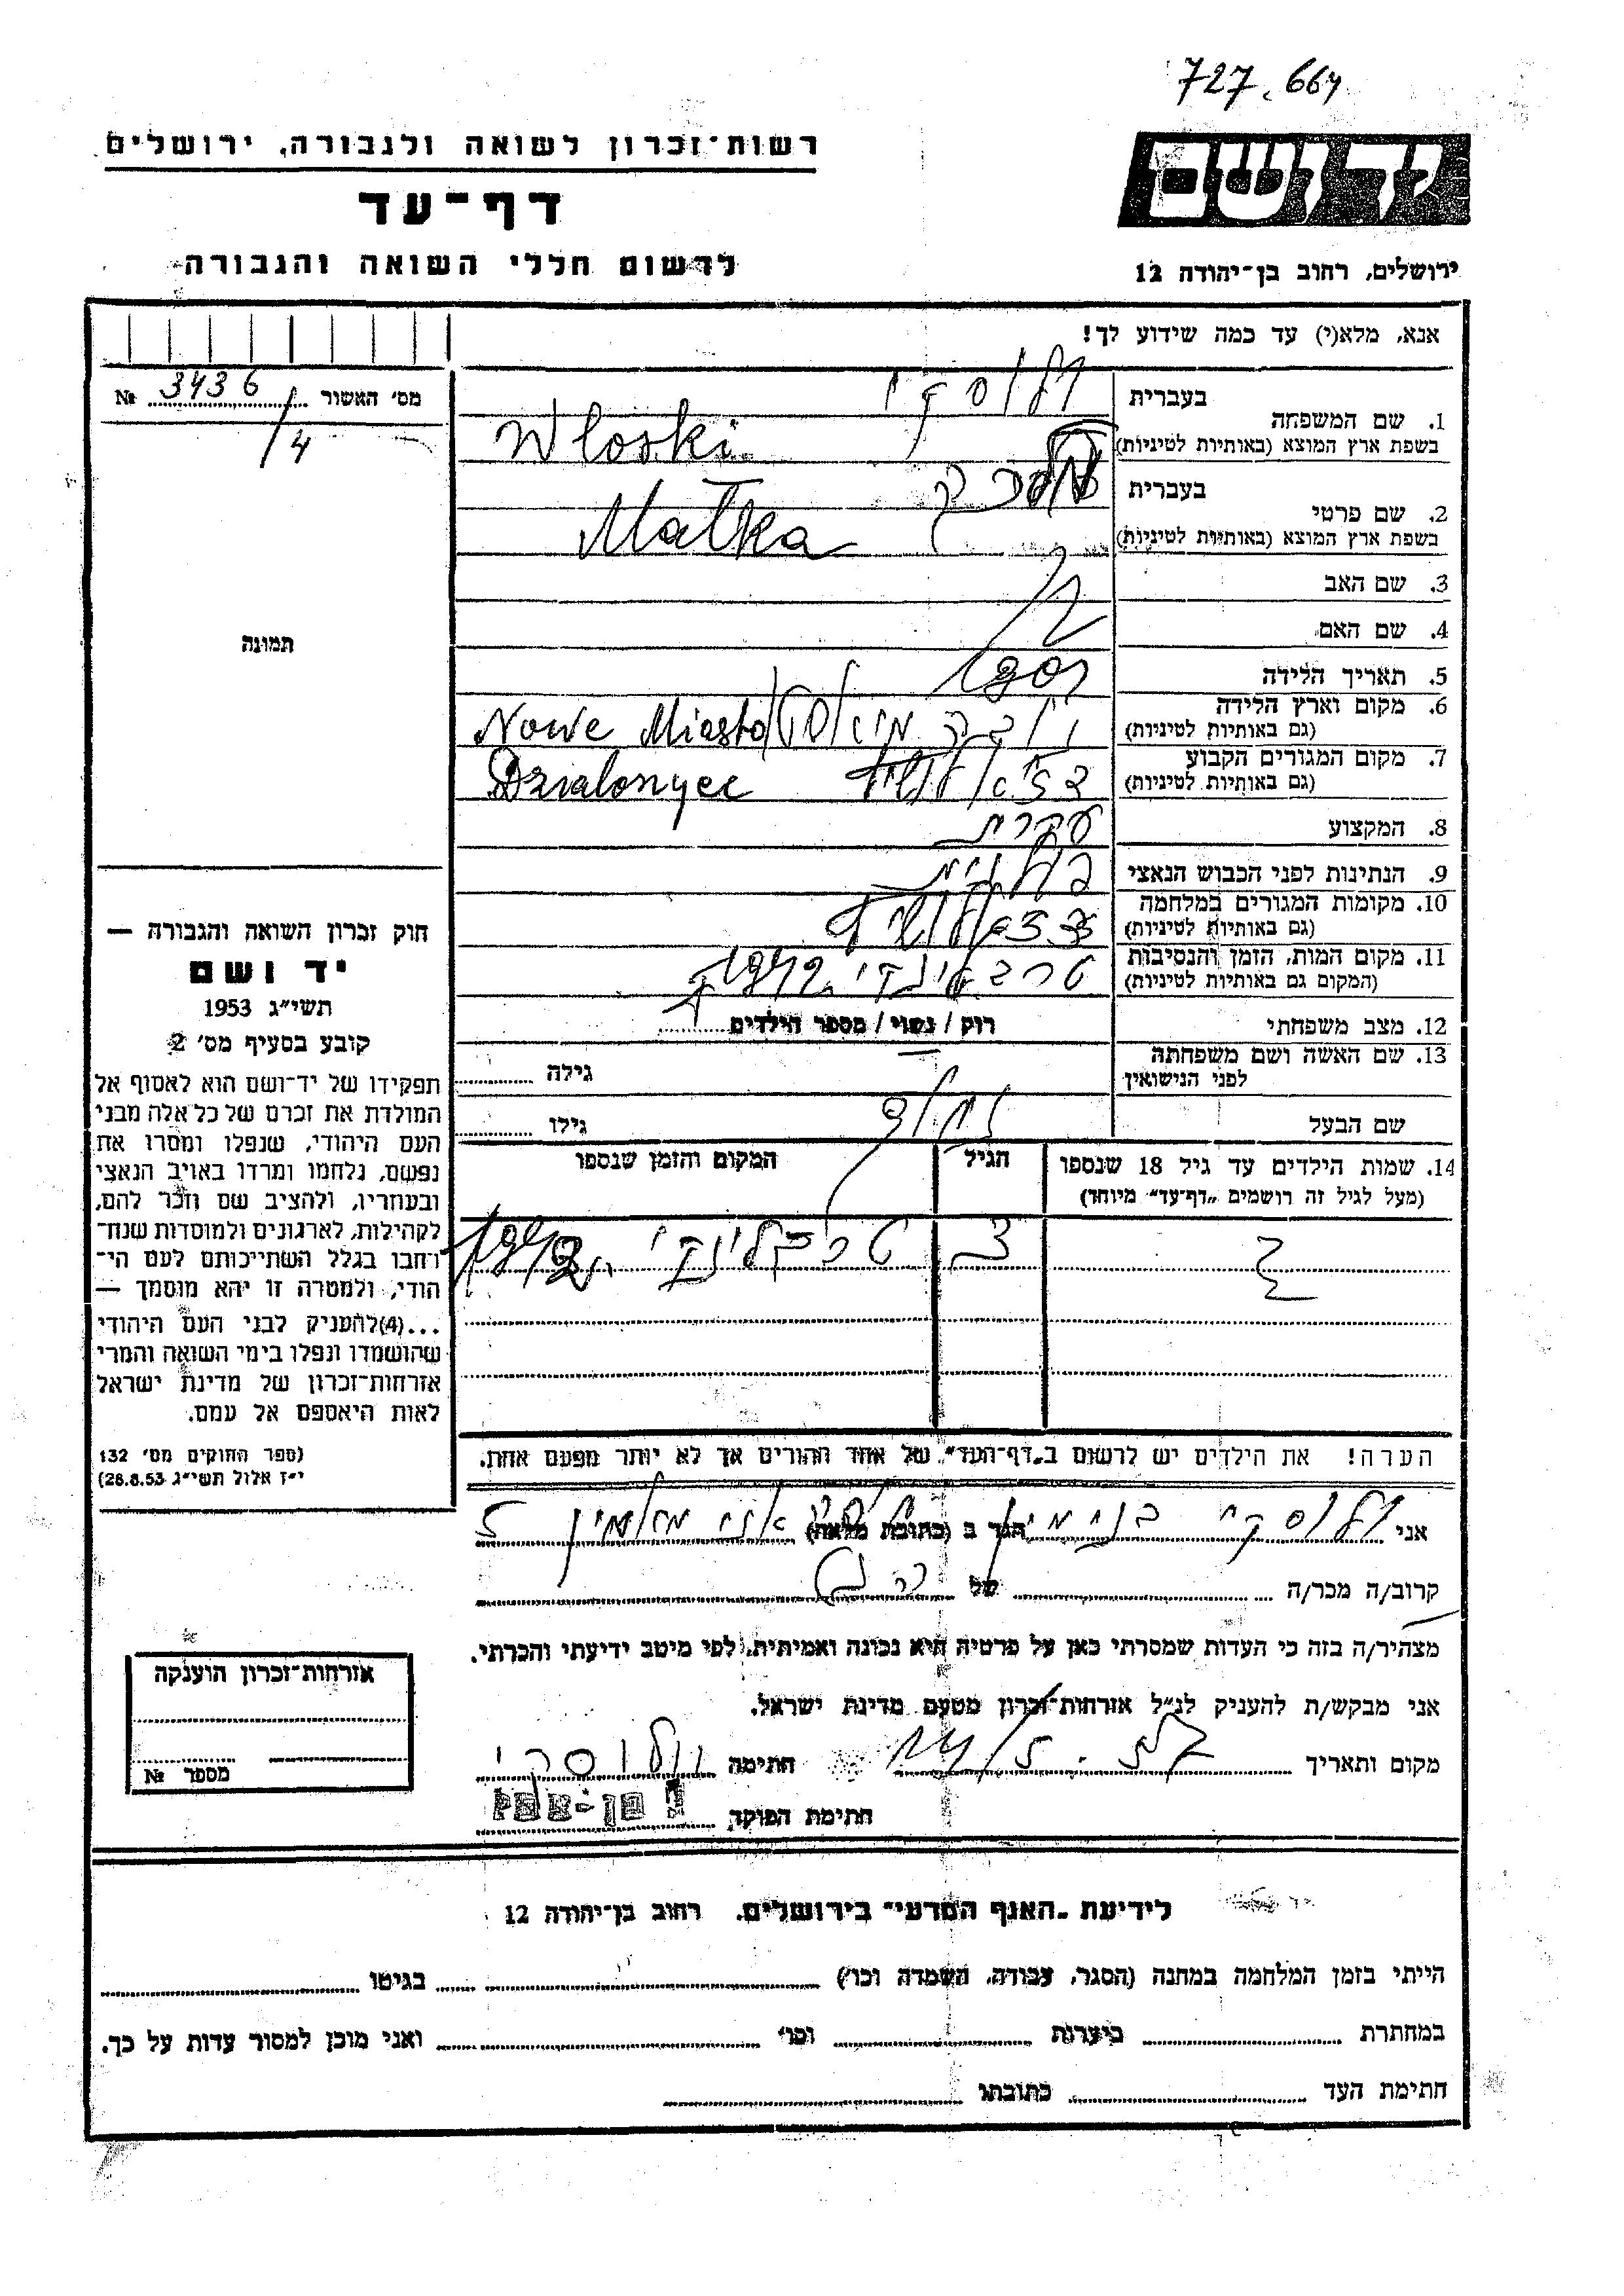 727.664
רשות־זכרון לשואה ולגבורה, ירושלים
דף־עד
לרשום חללי השואה והגבורה
ידושם
ירושלים, רחוב בן־יהודה 12
אנא, מלא(י) עד כמה שידוע לך!
מס' האשור 3436 №
4
1. שם המשפחה
בעברית ולוסקי
בשפת ארץ המוצא (באותיות לטיניות) Wloski
2. שם פרטי
בעברית מלכה
בשפת ארץ המוצא (באותיות לטיניות) Małka
3. שם האב
4. שם האם
5. תאריך הלידה
6. מקום וארץ הלידה
(גם באותיות לטיניות) Nowe Miasto
7. מקום המגורים הקבוע
(גם באותיות לטיניות) Dzialonyec
8. המקצוע עקרת
9. הנתינות לפני הכבוש הנאצי
10. מקומות המגורים במלחמה
(גם באותיות לטיניות)
11. מקום המות, הזמן והנסיבות
(המקום גם באותיות לטיניות) 1942
12. מצב משפחתי רוק / נשוי / מספר הילדים
13. שם האשה ושם משפחתה
לפני הנישואין גילה
שם הבעל גילו
14. שמות הילדים עד גיל 18 שנספו הגיל המקום והזמן שנספו
(מעל לגיל זה רושמים „דף־עד" מיוחד)
1942
הערה! את הילדים יש לרשום ב„דף־העד" של אחד ההורים אך לא יותר מפעם אחת.
תמונה
חוק זכרון השואה והגבורה —
יד ושם
תשי"ג 1953
קובע בסעיף מס' 2
תפקידו של יד־ושם הוא לאסוף אל
המולדת את זכרם של כל אלה מבני
העם היהודי, שנפלו ומסרו את
נפשם, נלחמו ומרדו באויב הנאצי
ובעוזריו, ולהציב שם וזכר להם,
לקהילות, לארגונים ולמוסדות שנח־
רחבו בגלל השתייכותם לעם הי־
הודי, ולמטרה זו יהא מוסמך —
...(4)להעניק לבני העם היהודי
שהושמדו ונפלו בימי השואה והמרי
אזרחות־זכרון של מדינת ישראל
לאות היאספם אל עמם.
(ספר החוקים מס' 132
י"ז אלול תשי"ג 28.8.53)
אני ולוסקי בנימין הגר ב (כתובת מלאה)
קרוב/ה מכר/ה של
מצהיר/ה בזה כי העדות שמסרתי כאן על פרטיה היא נכונה ואמיתית, לפי מיטב ידיעתי והכרתי.
אני מבקש/ת להעניק לנ"ל אזרחות־זכרון מטעם מדינת ישראל.
מקום ותאריך 14/5.57 חתימה ולוסקי
חתימת הפוקד
אזרחות־זכרון הוענקה
מספר №
לידיעת „האגף המדעי" בירושלים, רחוב בן־יהודה 12
הייתי בזמן המלחמה במחנה (הסגר, עבודה, השמדה וכו') בגיטו
במחתרת ביערות וכו' ואני מוכן למסור עדות על כך.
חתימת העד כתובתו